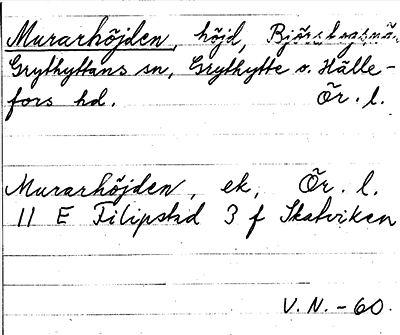 Murarhöjden, höjd,
Grythyttans sn, Grythytte o. Hälle-
fors hd. Ör. l.
Murarhöjden, ek, Ör. l.
11 E Filipstad 3 f Skatviken
V. N. - 60.